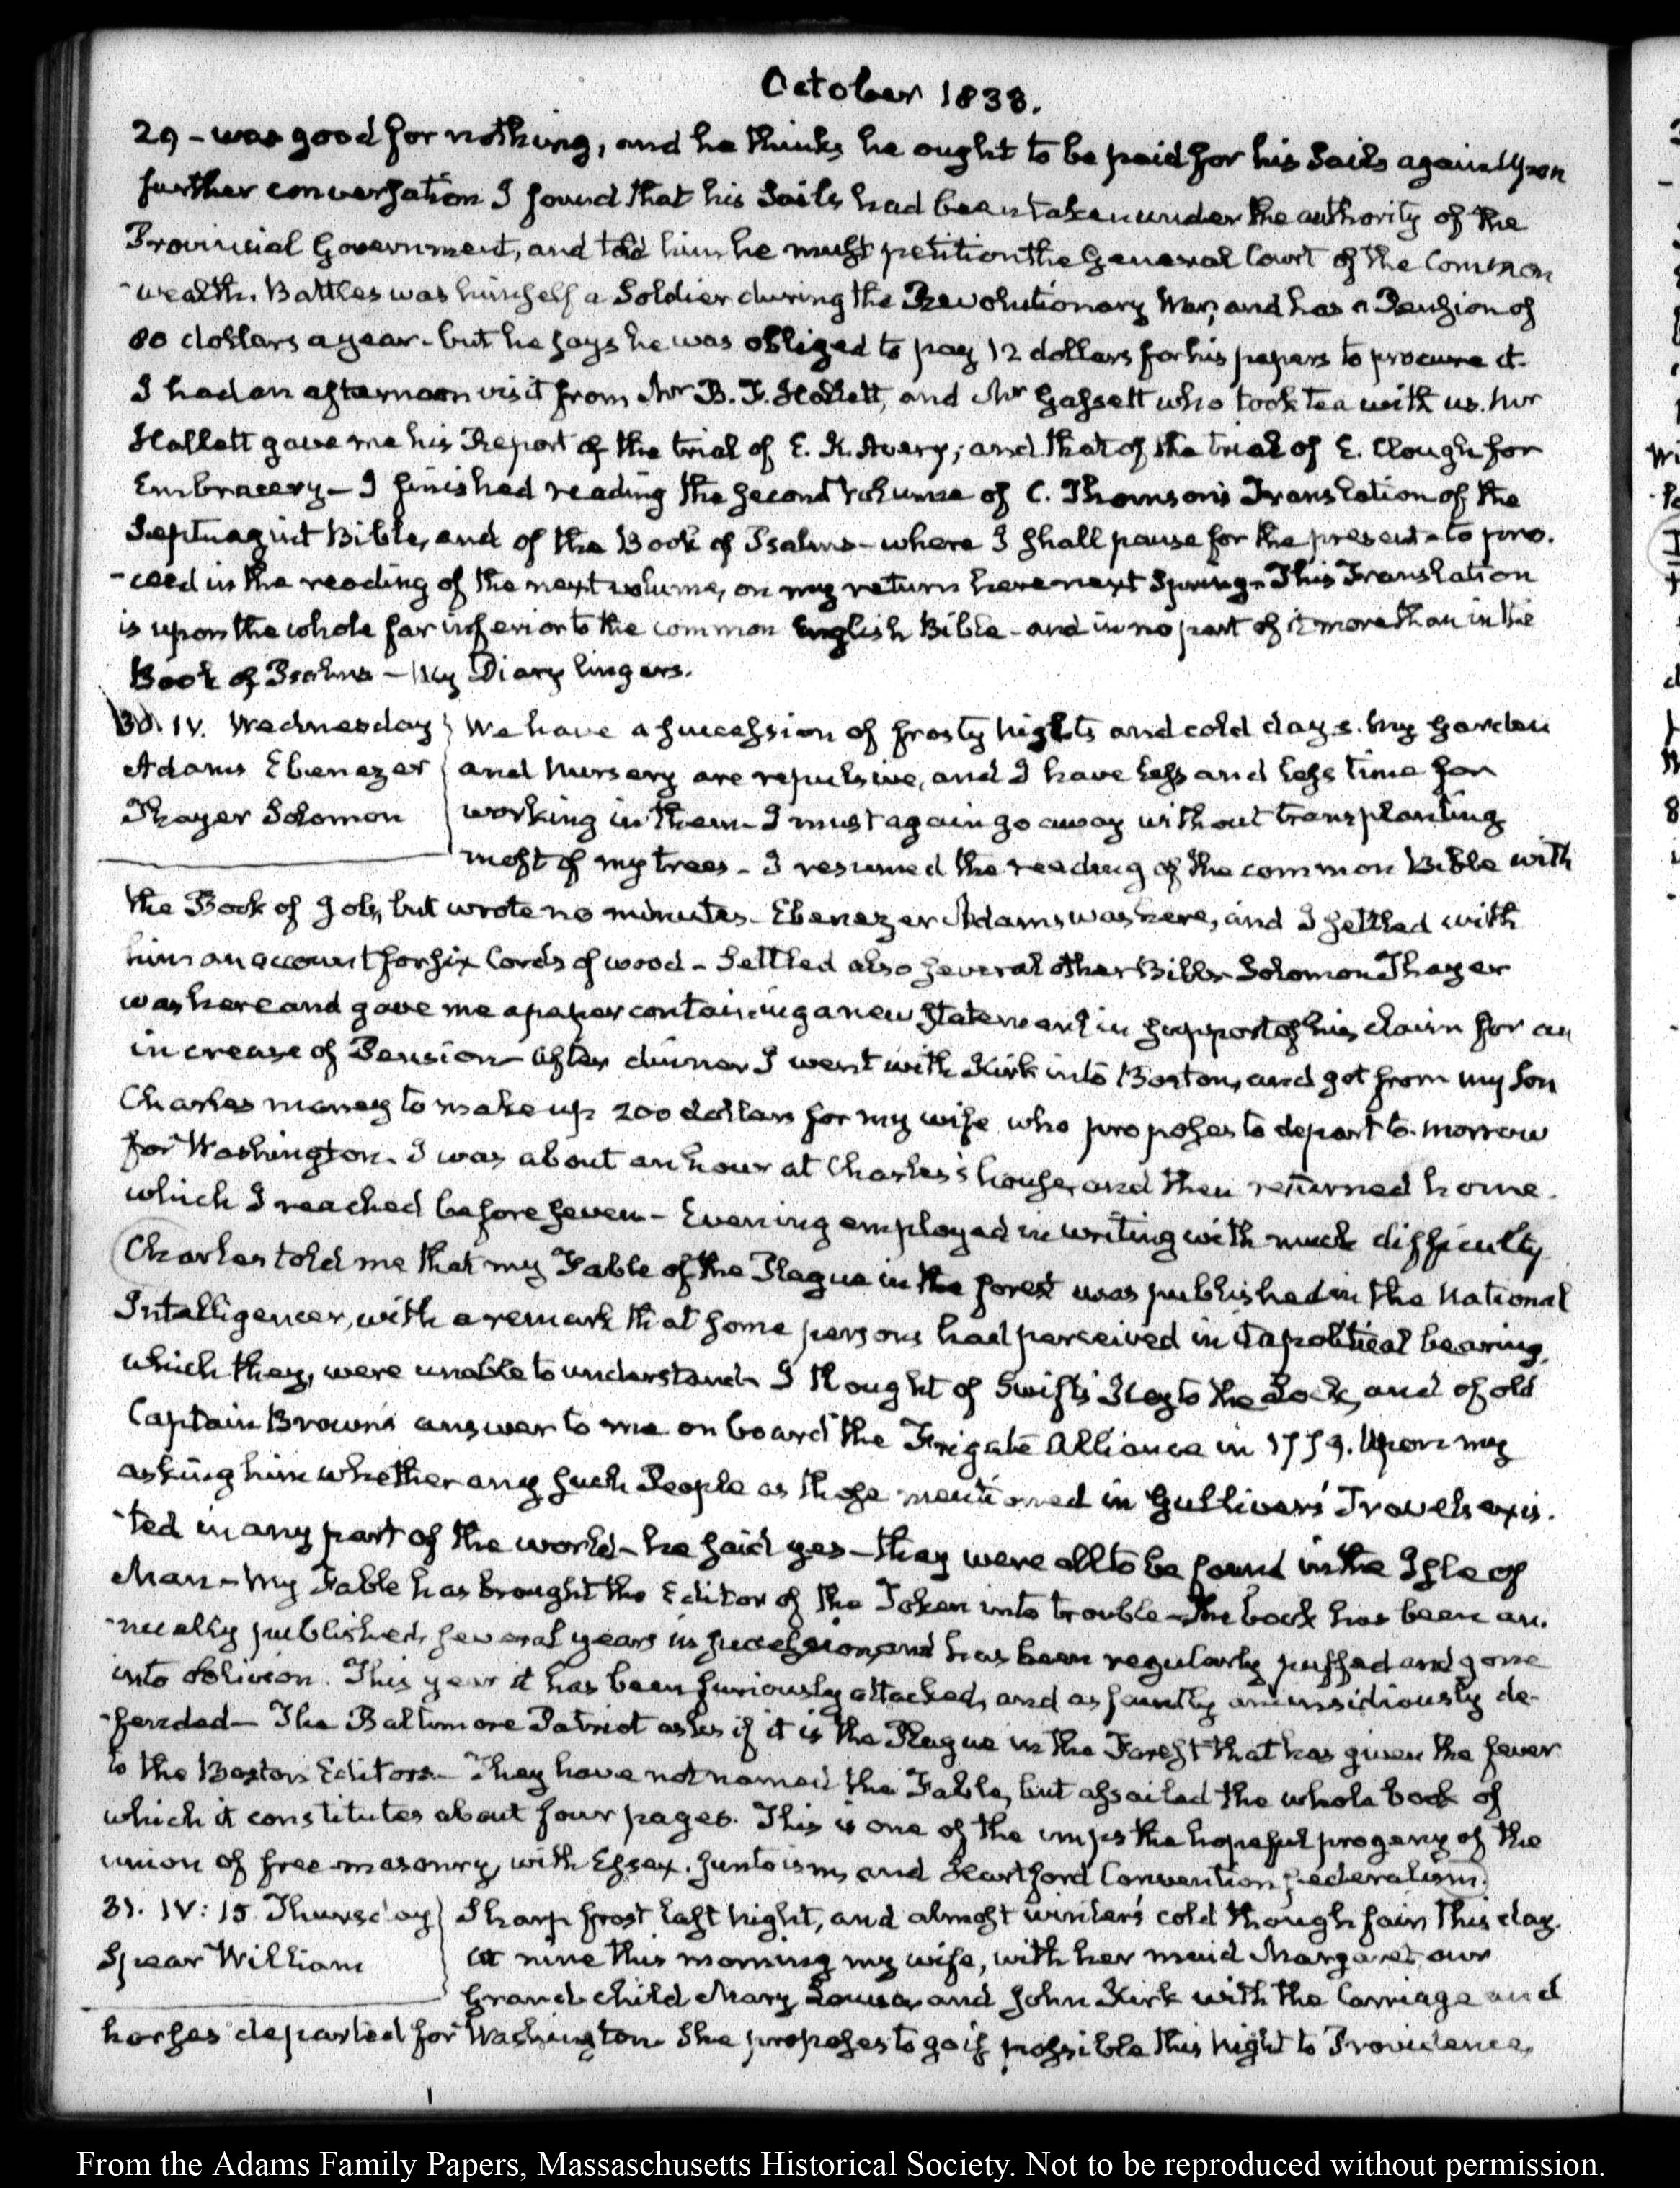 October 1833.
29 - was good for nothing, and he thinks he ought to be paid for his Sails again Upon
further conversation I found that his Sails had been taken under the authority of the
Provincial Government, and told him he must petition the General Court of the Common
-wealth. Battles was himself a Soldier during the Revolutionary War, and has a Pension of
80 dollars a year - but he says he was obliged to pay 12 dollars for his papers to procure it.
I had an afternoon visit from Mr B. F. Hallett, and Mr Gassett who took tea with us. Mr
Hallett gave me his Report of the trial of E. K. Avery; and that of the trial of E. Clough for
Embracery - I finished reading the second volume of C. Thomson's Translation of the
Septuagint Bible, and of the Book of Psalms - where I shall pause for the present - to pro-
-ceed in the reading of the next volume, on my return here next Spring - This Translation
is upon the whole far inferior to the common English Bible - and in no part of it more than in the
Book of Psalms - My Diary lingers.
30. IV. Wednesday
Adams Ebenezer
Thayer Solomon
We have a succession of frosty nights and cold days. My garden
and Nursery are repulsive, and I have less and less time for
working in them - I must again go away without transplanting
most of my trees - I resumed the reading of the common Bible with
the Book of Job, but wrote no minutes - Ebenezer Adams was here, and I settled with
him an account for six Cords of wood - Settled also several other Bills - Solomon Thayer
was here and gave me a paper containing a new statement in support of his claim for an
increase of Pension - After dinner I went with Kirk into Boston, and got from my Son
Charles money to make up 200 dollars for my wife who proposes to depart to-morrow
for Washington. I was about an hour at Charles's house, and then returned home.
which I reached before seven - Evening employed in writing with much difficulty
Charles told me that my Fable of the Plague in the forest was published in the National
Intelligencer, with a remark that some persons had perceived in it a political bearing,
which they, were unable to understand - I thought of Swift's Key to the Lock, and of old
Captain Brown's answer to me on board the Frigate Alliance in 1779. Upon my
asking him whether any such People as those mentioned in Gulliver's Travels exis-
-ted in any part of the world - he said yes - they were all to be found in the Isle of
Man - My Fable has brought the Editor of the Token into trouble - The book has been an-
-nually published, several years in succession, and has been regularly puffed and gone
into oblivion. This year it has been furiously attacked, and as faintly and insidiously de-
-fended - The Baltimore Patriot asks if it is the Plague in the Forest that has given the fever
to the Boston Editors - They have not named the Fable, but assailed the whole book of
which it constitutes about four pages. This is one of the imps the hopeful progeny of the
union of free-masonry, with Essex-Juntoism, and Hartford Convention federalism.
31. IV: 15. Thursday
Spear William
Sharp frost last night, and almost winter's cold though fair, this day.
At nine this morning my wife, with her maid Margaret, our
Grand-child Mary Louisa, and John Kirk with the Carriage and
horses departed for Washington. She proposes to go if possible this night to Providence,
From the Adams Family Papers, Massaschusetts Historical Society. Not to be reproduced without permission.